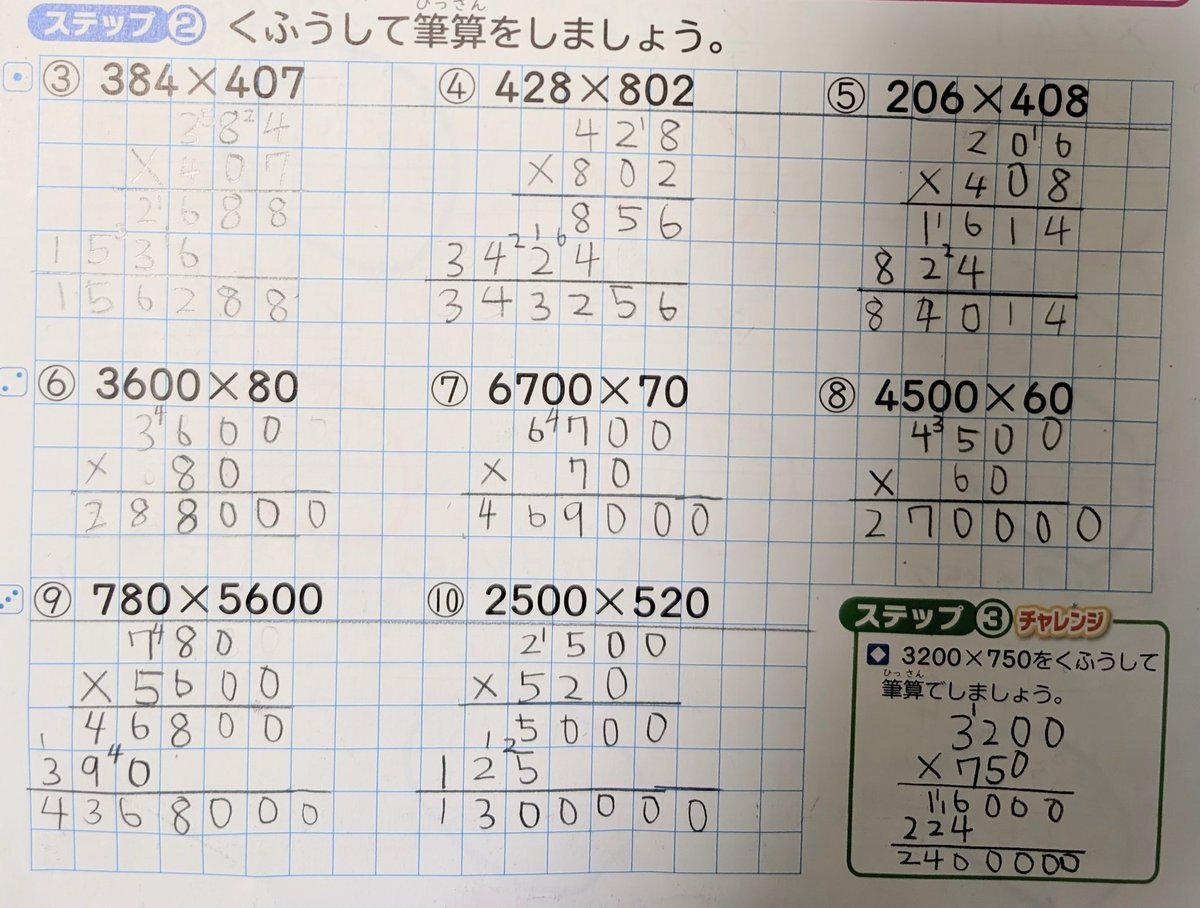 ステップ② くふうして筆算をしましょう。
ひっさん
③ 384×407
384
×407
2688
1536
156288
④ 428×802
428
×802
856
3424
343256
⑤ 206×408
206
×408
1614
824
84014
⑥ 3600×80
3600
×80
288000
⑦ 6700×70
6700
×70
469000
⑧ 4500×60
4500
×60
270000
⑨ 780×5600
780
×5600
46800
390
4368000
⑩ 2500×520
2500
×520
5000
125
1300000
ステップ③ チャレンジ
3200×750をくふうして
ひっさん
筆算でしましょう。
3200
×750
16000
224
2400000